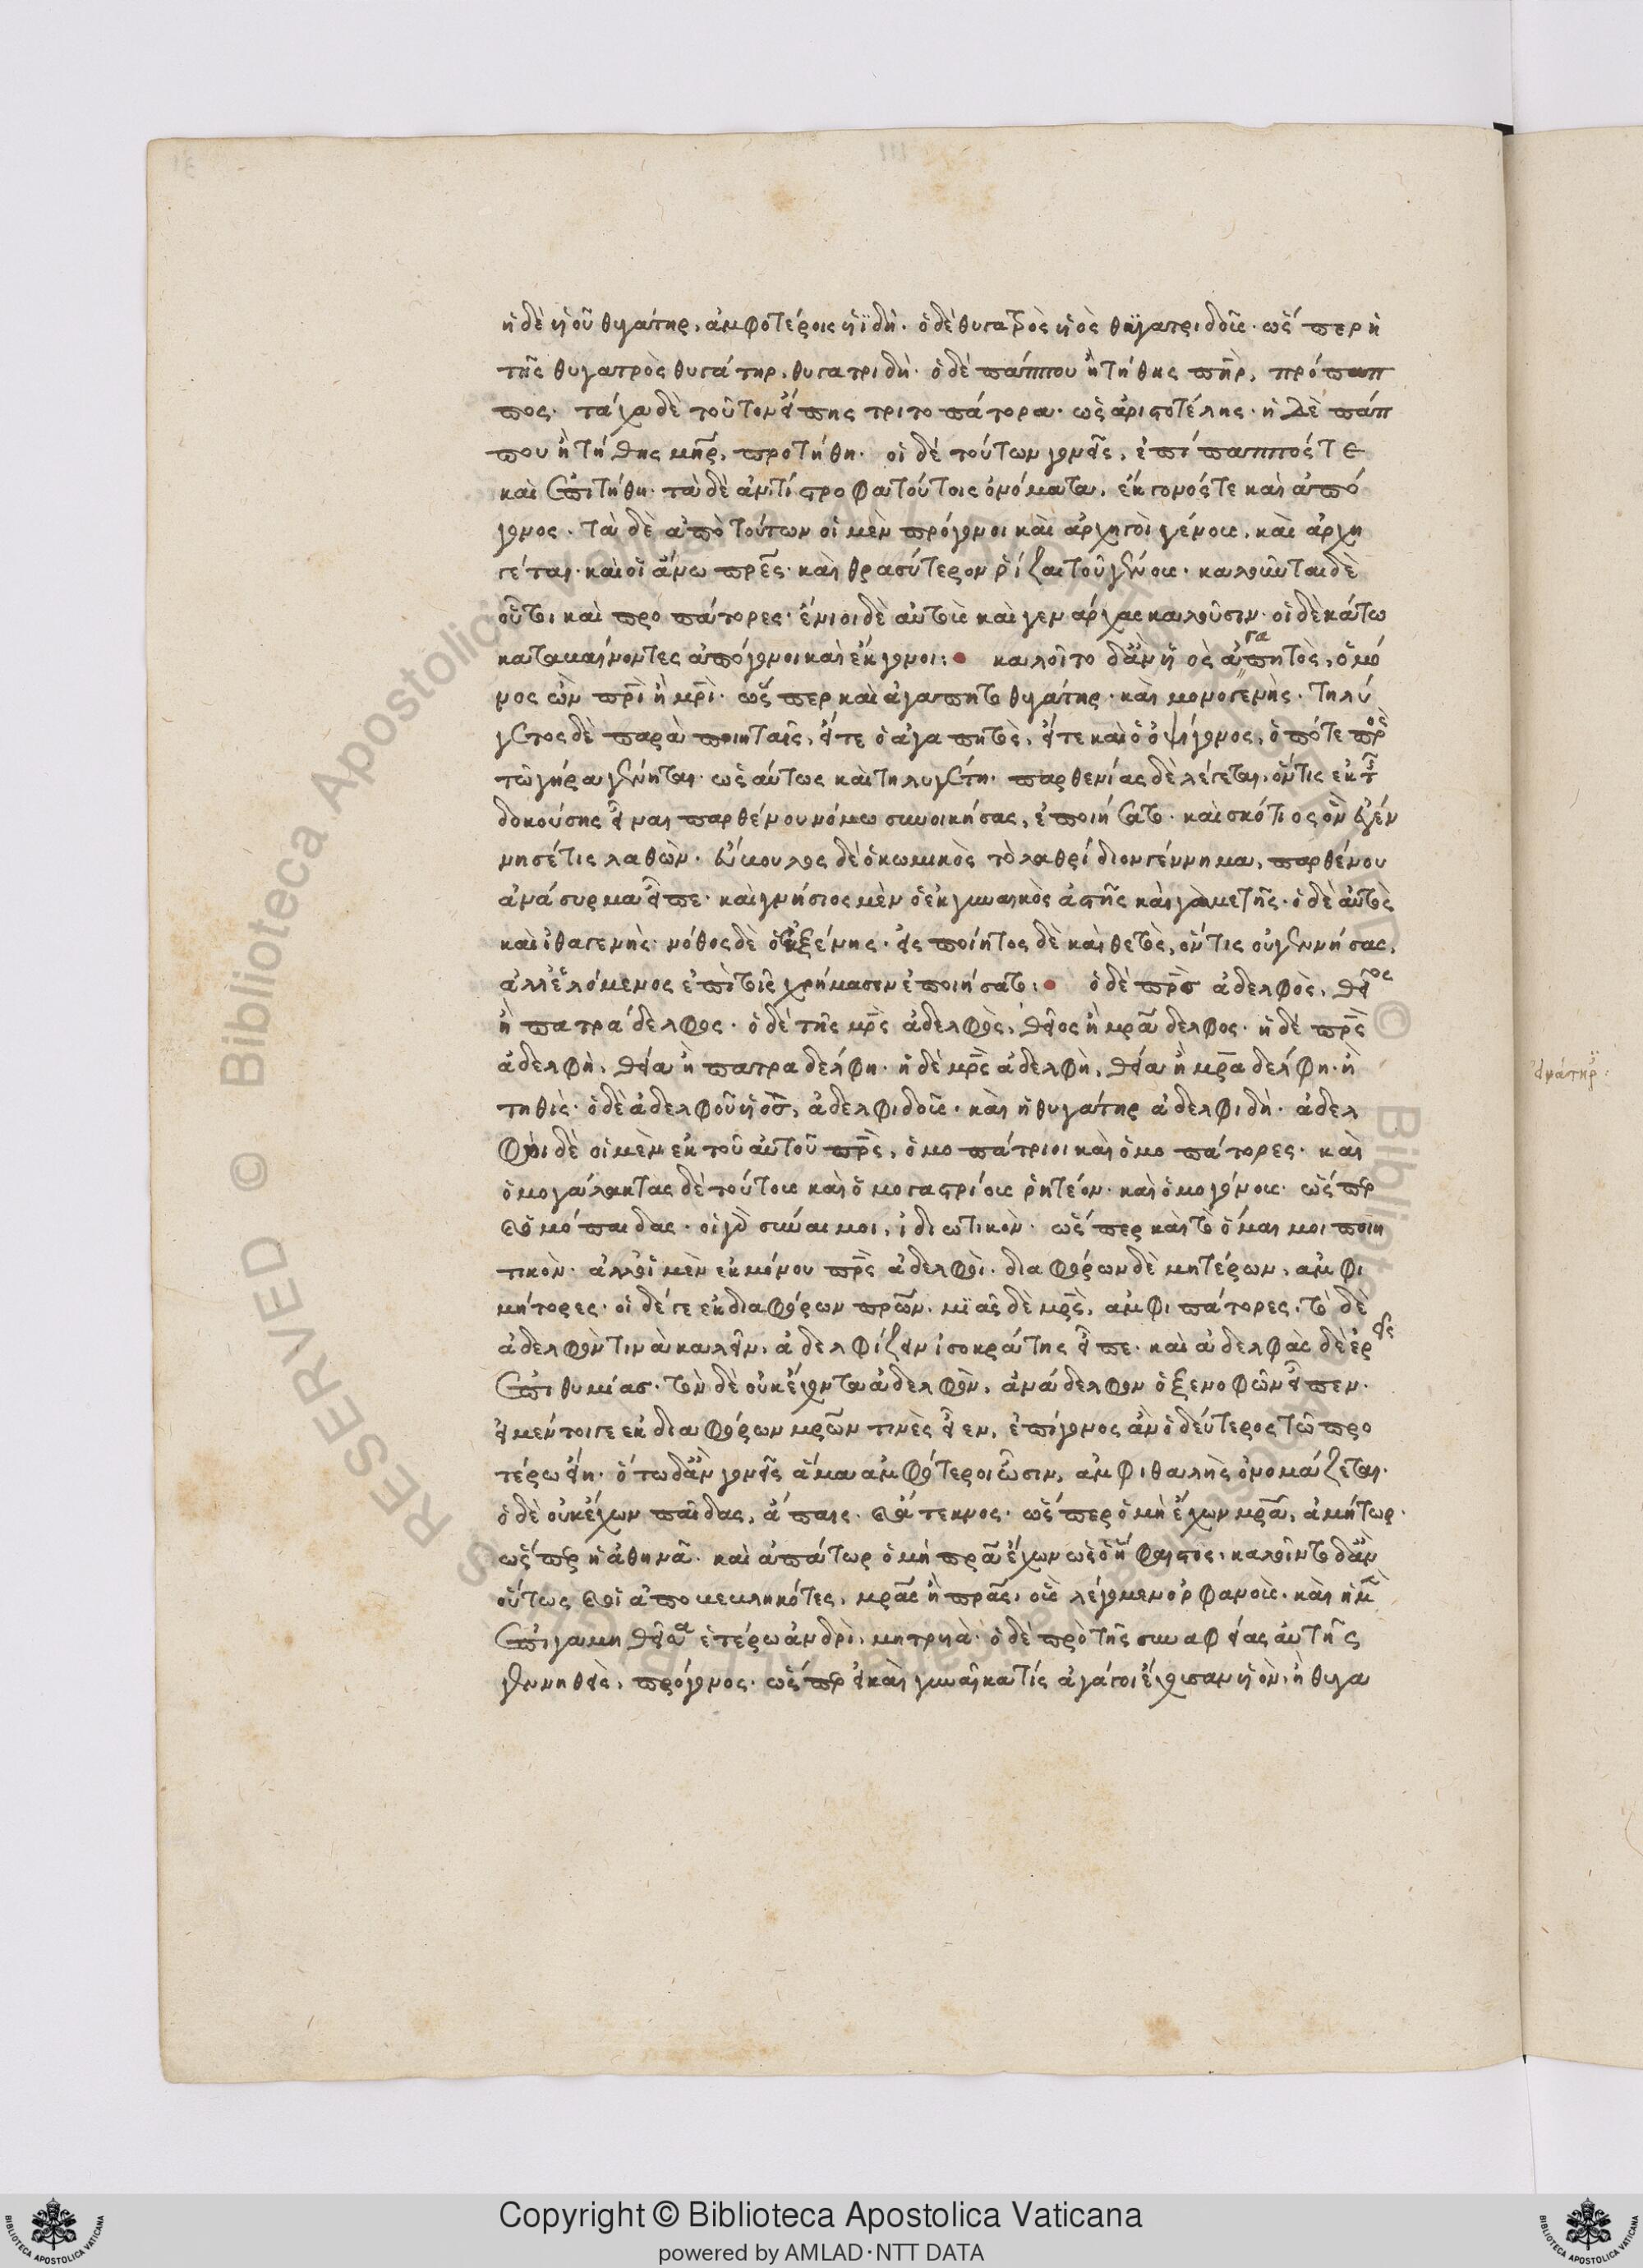 ἡ δὲ υἱοῦ θυγάτηρ, ἀμφοτέροις υἱϊδή· ὁ δὲ θυγατρὸς υἱὸς θυγατριδοῦς· ὥσπερ ἡ
τῆς θυγατρὸς θυγάτηρ, θυγατριδή· ὁ δὲ πάππου ἢ τήθης πηρ, πρόπαπ
πος· τάχα δὲ τοῦτον εἴπης τριτοπάτορα· ὡς ἀριστοτέλης· ἡ δὲ πάπ
που ἢ τήθης μηρ, προτήθη· οἱ δὲ τούτων γονεῖς, ἐπίπαππός τε
καὶ ἐπιτήθη· τὰ δὲ ἀντίστροφα τούτοις ὀνόματα, ἔκγονός τε καὶ ἀπό
γονος· τὰ δὲ ἀπὸ τούτων οἱ μὲν πρόγονοι καὶ ἀρχηγοὶ γένους, καὶ ἀρχη
γέται· καὶ οἱ ἄνω πρες· καὶ θρασύτερον ῥίζαι τοῦ γένους· καλοῦνται δὲ
οὗτοι καὶ προπάτορες· ἔνιοι δὲ αὐτοὺς καὶ γενάρχας καλοῦσιν· οἱ δὲ κάτω
καταμαίνοντες ἀπόγονοι καὶ ἔκγονοι: καλοῖτο δ᾽ἂν υἱὸς ἀγαπητὸς, ὁ μό
νος ὢν πρι ἢ μρι· ὥσπερ καὶ ἀγαπητὸ θυγάτηρ· καὶ μονογενής· τηλύ
γετος δὲ παρὰ ποιηταῖς, εἴτε ὁ ἀγαπητὸς, εἴτε καὶ ὁ ὀψίγονος, ὁπότε πρὸς
τῶ γήρα γένηται· ὡσαύτως καὶ τηλυγέτη· παρθενίας δὲ λέγεται, ὅντις ἐκ τ
δοκούσης εἶναι παρθένου νόμω συνοικήσας, ἐποιήσατο· καὶ σκότιος ὃν ἐγέν
νησέ τις λαθών· εὔπολος δὲ ὁ κωμικὸς τὸ λαθρίδιον γέννημα, παρθένου
ἀνάσυρμα εἶπε· καὶ γνήσιος μὲν ὁ ἐκ γυναικὸς ἀστῆς καὶ γαμετῆς· ὁ δὲ αὐτὸς
καὶ ἰθαγενής· νόθος δὲ ὁ ἐκ ξένης· εἰσποίητος δὲ καὶ θετὸς, ὅντις οὐ γεννήσας,
ἀλλ᾽ ἑλόμενος ἐπὶ τοῖς χρήμασιν ἐποιήσατο: ὁ δὲ πρς ἀδελφὸς, θεῖος
ἢ πατράδελφος· ὁ δὲ τῆς μρς ἀδελφὸς, θεῖος ἢ μράδελφος· ἡ δὲ πρς
ἀδελφὴ, θεία ἢ πατραδέλφη· ἡ δὲ μρς ἀδελφὴ, θεία ἢ μραδέλφη· ἢ
τηθίς· ὁ δὲ ἀδελφοῦ υἱός, ἀδελφιδοῦς· καὶ ἡ θυγάτηρ ἀδελφιδή· ἀδελ
φοὶ δὲ οἱ μὲν ἐκ τοῦ αὐτοῦ πρς, ὁμοπάτριοι καὶ ὁμοπάτορες· καὶ
ὁμογάλακτας δὲ τούτους καὶ ὁμογαστρίους ῥητέον· καὶ ὁμογόνους· ὥσπερ
ὁμόπαιδας· οἱ γὰρ σύναιμοι, ἰδιωτικόν· ὥσπερ καὶ τὸ ὅμαιμοι ποιη
τικόν· ἀλλ᾽ οἱ μὲν ἐκ μόνου πρς ἀδελφοὶ· διαφόρων δὲ μητέρων, ἀμφι
μήτορες· οἱ δέ γε ἐκ διαφόρων πρων, μιᾶς δὲ μρς, ἀμφιπάτορες, τὸ δὲ
ἀδελφόν τινα καλεῖν, ἀδελφίζειν ἰσοκράτης εἶπε· καὶ ἀδελφὰς δὲ ἐρεῖς
ἐπιθυμίας· τὸν δὲ οὐκ ἔχοντα ἀδελφὸν, ἀνάδελφον ὁ ξενοφῶν εἶπεν·
εἰ μέντοι γε ἐκ διαφόρων μρων τινὲς εἶεν, ἐπίγονος ἂν ὁ δεύτερος τῶ προ
τέρω εἴη· ὅτω δ᾽ἂν γονεῖς ἅμα ἀμφότεροι ὦσιν, ἀμφιθαλὴς ὀνομάζεται·
ὁ δὲ οὐκ ἔχων παῖδας, ἄπαις· ἄτεκνος· ὥσπερ ὁ μὴ ἔχων μρα, ἀμήτωρ·
ὥσπερ ἡ ἀθηνᾶ· καὶ ἀπάτωρ ὁ μὴ πρα ἔχων ὡς ὁ ἥφαιστος· καλοῖντο δ᾽ἂν
οὕτως οἱ ἀποβεβληκότες, μρας ἢ πρας, οὓς λέγομεν ὀρφανούς· καὶ ἡ μ
ἐπιγαμηθεῖσα ἑτέρω ἀνδρὶ, μητρυιά· ὁ δὲ πρὸ τῆς συναφείας αὐτῆς
γεννηθεὶς, πρόγονος· ὥσπερ εἰ καὶ γυναῖκα τίς ἀγάγοι ἔχουσαν υἱὸν, ἢ θυγα
Copyright © Biblioteca Apostolica Vaticana
powered by AMLAD·NTT DATA